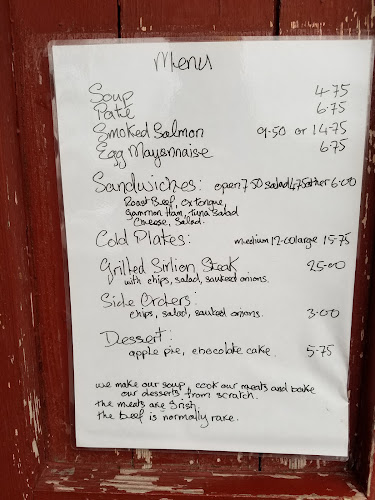 Menu
Soup 4.75
Paté 6.75
Smoked Salmon 9.50 or 14.75
Egg Mayonnaise 6.75
Sandwiches: open 7.50 salad 4.75 other 6.00
Roast Beef, Ox tongue,
Gammon Ham, Tuna Salad
Cheese, Salad.
Cold Plates: medium 12.00 large 15.75
Grilled Sirlion Steak 25.00
with chips, salad, sauteed onions.
Side Orders: 3.00
chips, salad, sauted onions.
Dessert:
apple pie, chocolate cake. 5.75
we make our soup, cook our meats and bake
our desserts from scratch.
the meats are Irish.
the beef is normally rare.